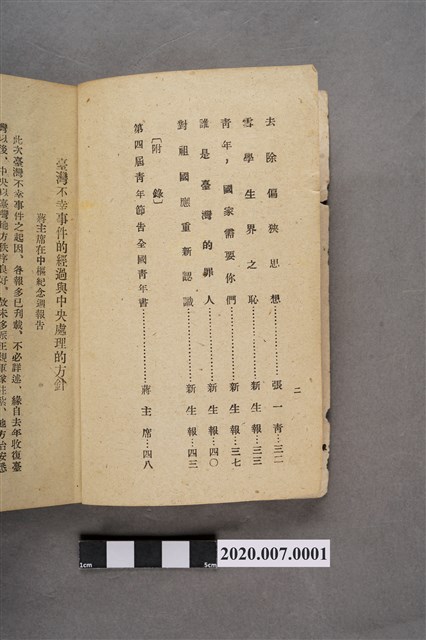 二
去除偏狹思想…………張一青…三二
雪學生界之恥…………新生報…三三
青年，國家需要你們…………新生報…三七
誰是臺灣的罪人…………新生報…四〇
對祖國應重新認識…………新生報…四三
〔附錄〕
第四屆青年節告全國青年書…………蔣主席…四八
臺灣不幸事件的經過與中央處理的方針
蔣主席在中樞紀念週報告
此次臺灣不幸事件之起因、各報多已刊載、不必詳述、緣自去年收復臺
灣以後、中央以臺灣地方秩序良好、故未多派正規軍隊駐紮、地方治安悉
1cm
5cm
2020.007.0001